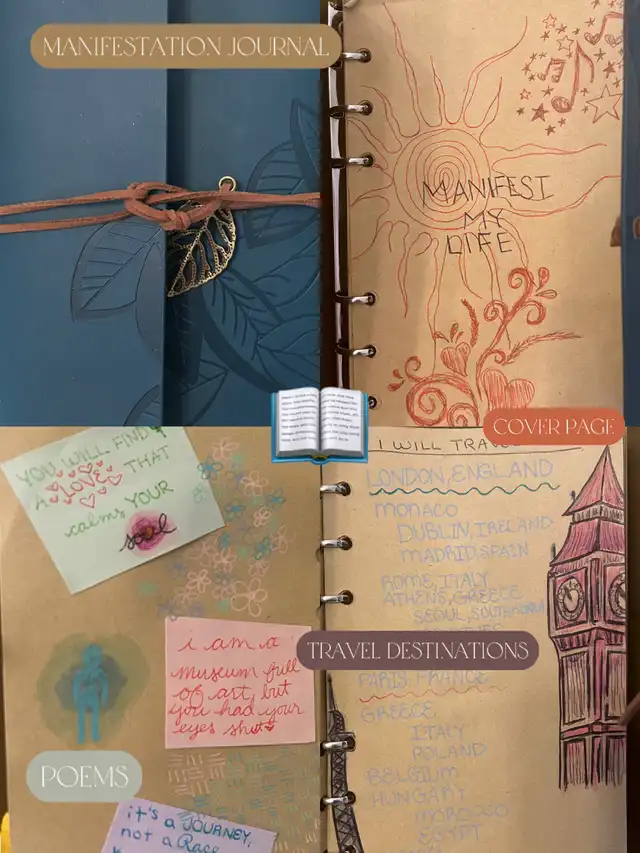 MANIFESTATION JOURNAL
MANIFEST
MY
LIFE
COVER PAGE
YOU WILL FIND
A LOVE THAT
calms YOUR
soul
i am a
museum full
of art, but
you had your
eyes shut
POEMS
it's a JOURNEY,
not a Race
I WILL TRAVEL
LONDON, ENGLAND
MONACO
DUBLIN, IRELAND
MADRID, SPAIN
ROME, ITALY
ATHENS, GREECE
SEOUL, SOUTH KOREA
TRAVEL DESTINATIONS
PARIS, FRANCE
GREECE
ITALY
POLAND
BELGIUM
HUNGARY
MOROCCO
EGYPT